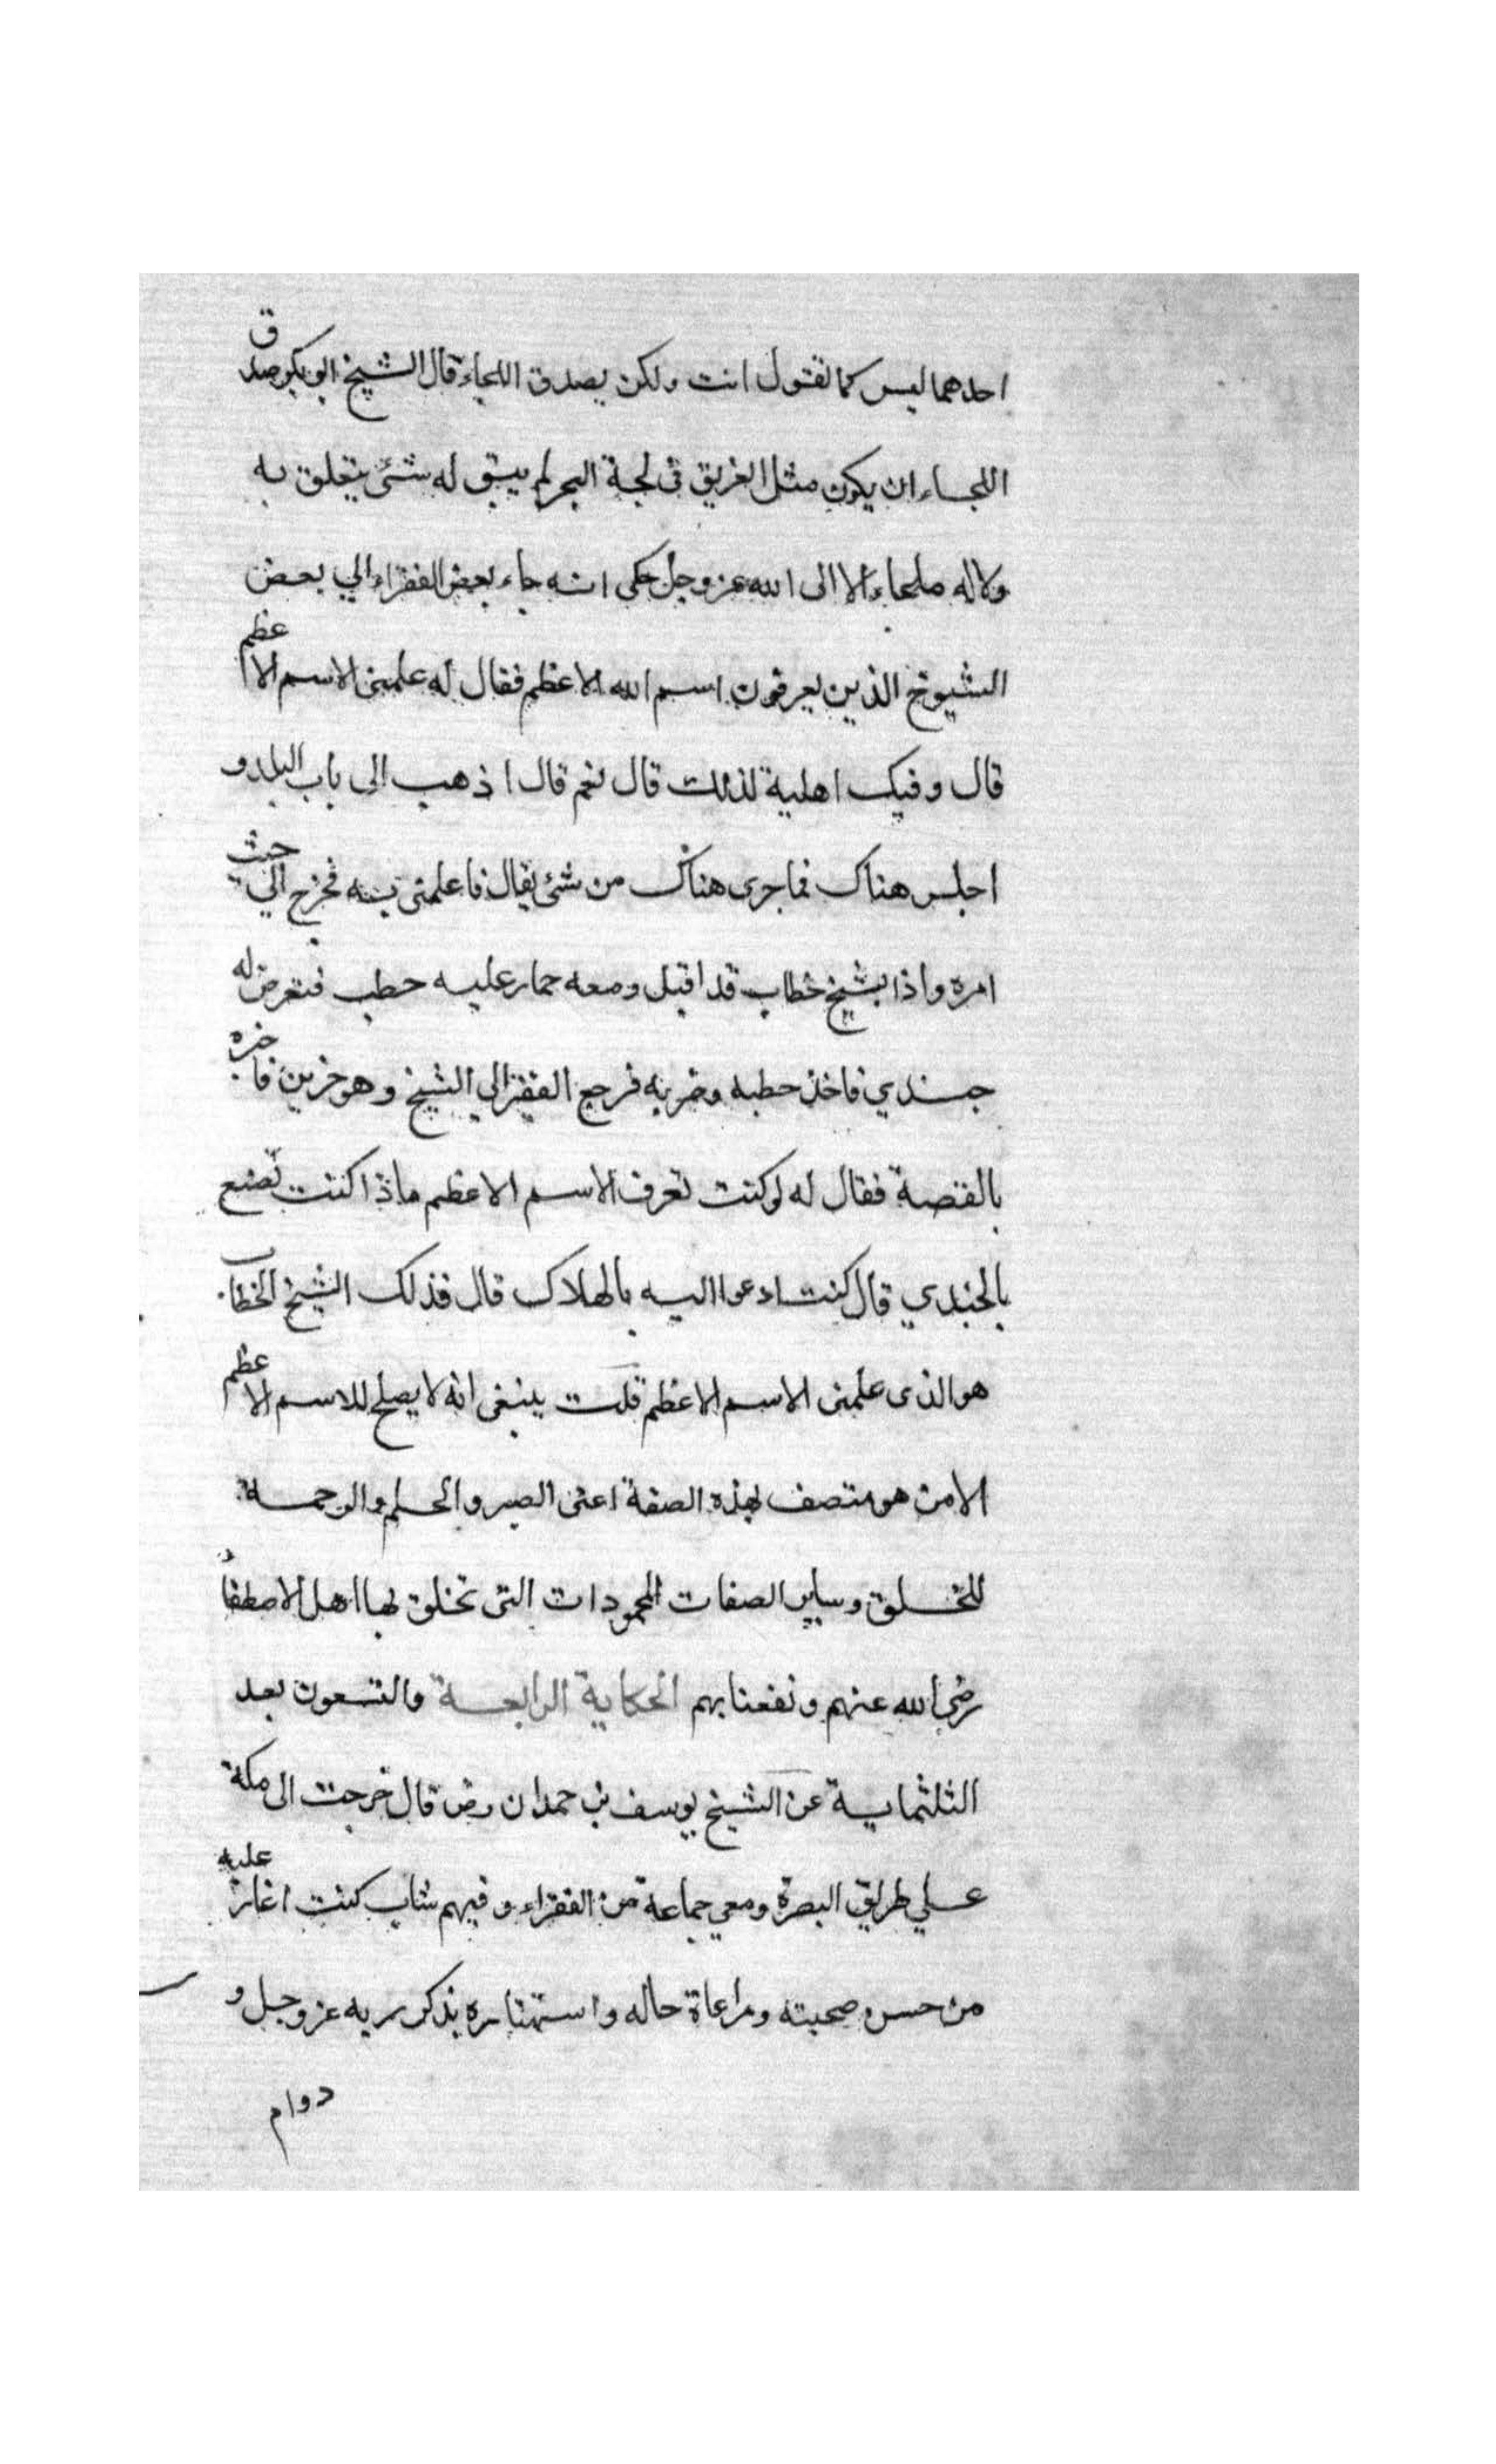 احدهما ليس كما تقول انت ولكن يصدق اللجاء قال الشيخ ابو بكر صدق
اللجاء ان يكون مثل الغريق في لجة البحر لم يبق له شئ يتعلق به
ولا له ملجاء الا الى الله عز وجل حكى انه جاء بعض الفقراء الي بعض
الشيوخ الذين يعرفون اسم الله الاعظم فقال له علمنى الاسم الاعظم
قال وفيك اهلية لذلك قال نعم قال اذهب الى باب البلد و
اجلس هناك فما جرى هناك من شئ يقال فاعلمنى به فخرج الي حيث
امره واذا بشيخ خطاب قد اقبل ومعه حمار عليه حطب فتعرض له
جندي فاخذ حطبه وضربه فرجع الفقير الي الشيخ وهو حزين فاخبره
بالقصة فقال له لو كنت تعرف الاسم الاعظم ماذا كنت تصنع
بالجندي قال كنت ادعوا اليه بالهلاك قال فذلك الشيخ الخطاب
هو الذى علمنى الاسم الاعظم قلت ينبغى انه لا يصلح للاسم الاعظم
الا من هو متصف بهذه الصفة اعنى الصبر والحلم والرحمة
للخلق وساير الصفات المحمودات التى تخلق بها اهل الاصطفا
رضي الله عنهم ونفعنا بهم الحكاية الرابعة والتسعون بعد
الثلثماية عن الشيخ يوسف بن حمدان رض قال خرجت الى مكة
علي طريق البصرة ومعي جماعة من الفقراء وفيهم شاب كنت اغار عليه
من حسن صحبته ومراعاة حاله واستهتاره بذكر ربه عز وجل و
دوام